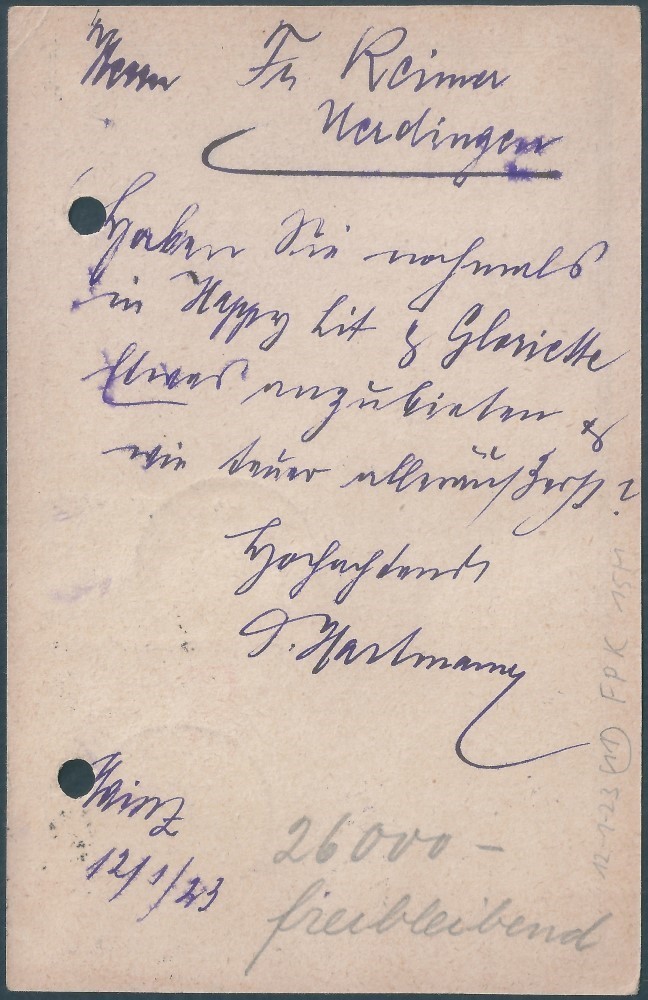 Herrn Fr Reimer
Uerdingen
Haben Sie nochmals
in Happy Hit & Gloriette
Etwas anzubieten &
wie teuer alleräußerst?
Hochachtend
D. Hartmann
Mainz
12/1/23
26000 –
freibleibend
12-1-23 (11) FPK 15M